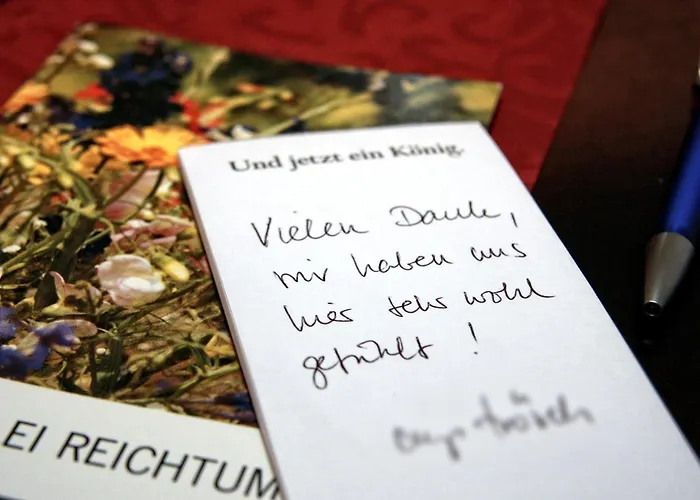 Und jetzt ein König.
Vielen Dank,
wir haben uns
hier sehr wohl
gefühlt !
EI REICHTUM